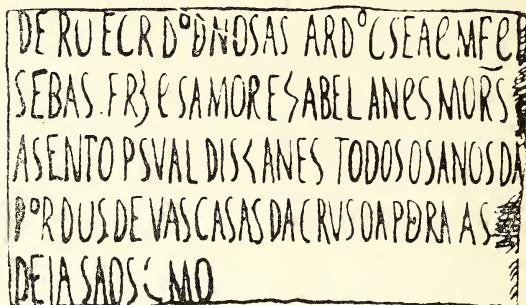 DE RUECR DºDNOSAS ARDºCSEAEMFE
SEBAS. FRZ E SAMORESABELANES MORS
ASENTO PSVALDISCANES TODOSOSANOSDA
PºRDUSDEVASCASASDACRUSOAPDRAAS
DEIASADS MO